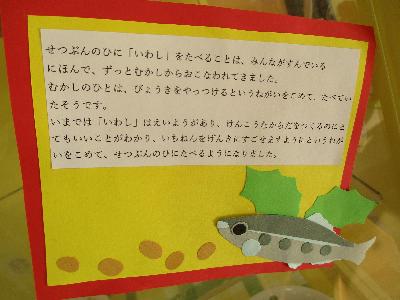 せつぶんのひに「いわし」をたべることは、みんながすんでいる
にほんで、ずっとむかしからおこなわれてきました。
むかしのひとは、びょうきをやっつけるというねがいをこめて、たべてい
たそうです。
いまでは「いわし」はえいようがあり、けんこうなからだをつくるのにと
てもいいことがわかり、いちねんをげんきにすごせますようにというねが
いをこめて、せつぶんのひにたべるようになりました。